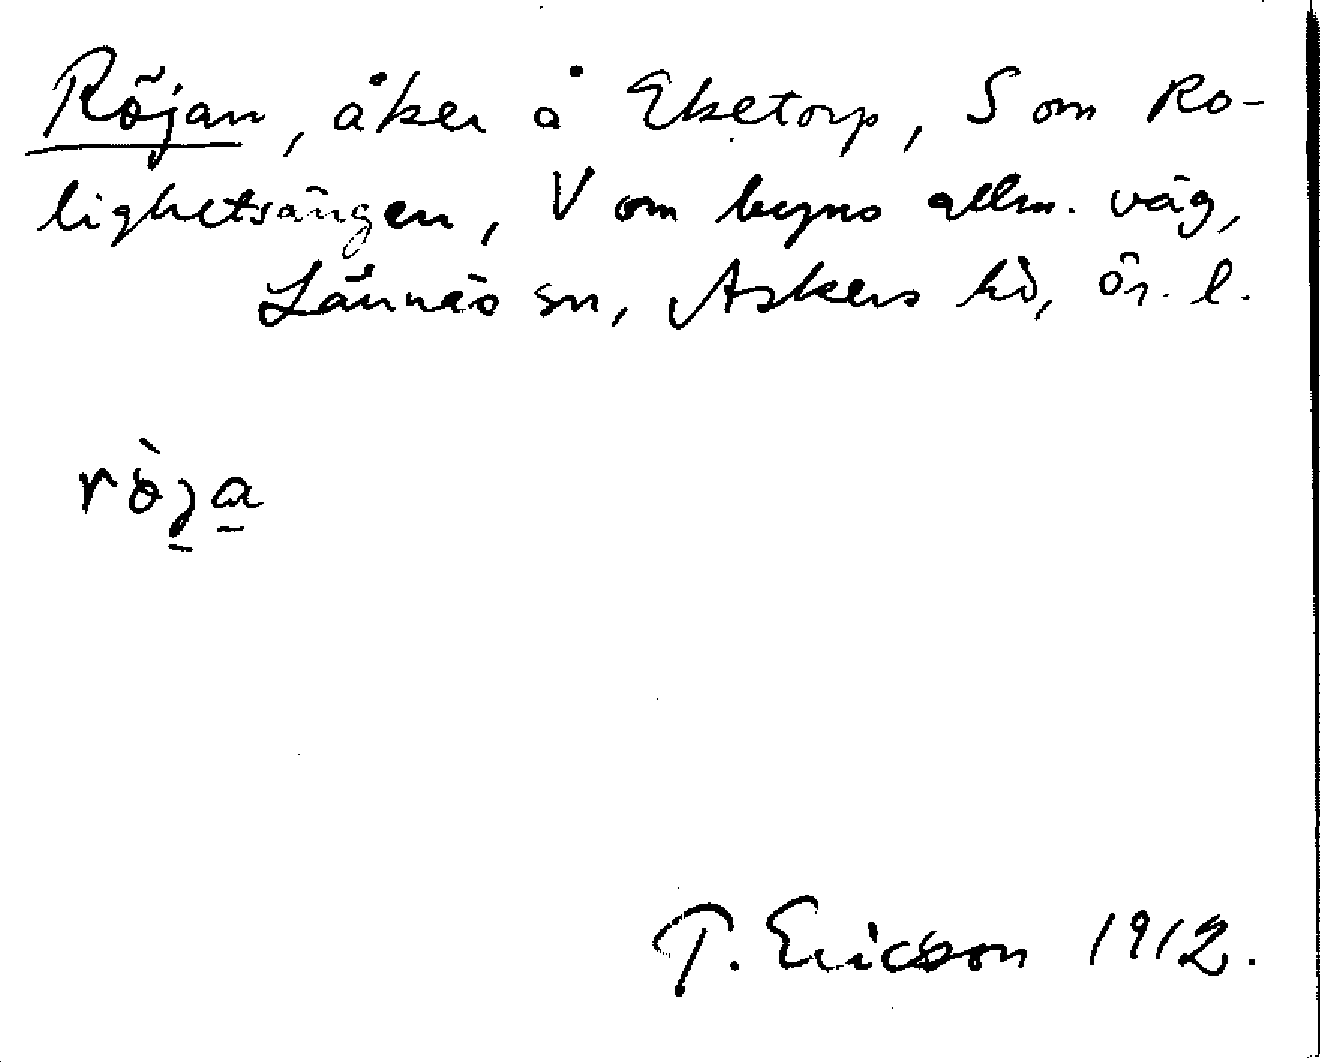 Röjan, åker å Eketorp, S om Ro-
lighetsängen, V om byns allm. väg,
Lännäs sn, Askers hd, Ör. l.
ròja
T. Ericsson 1912.